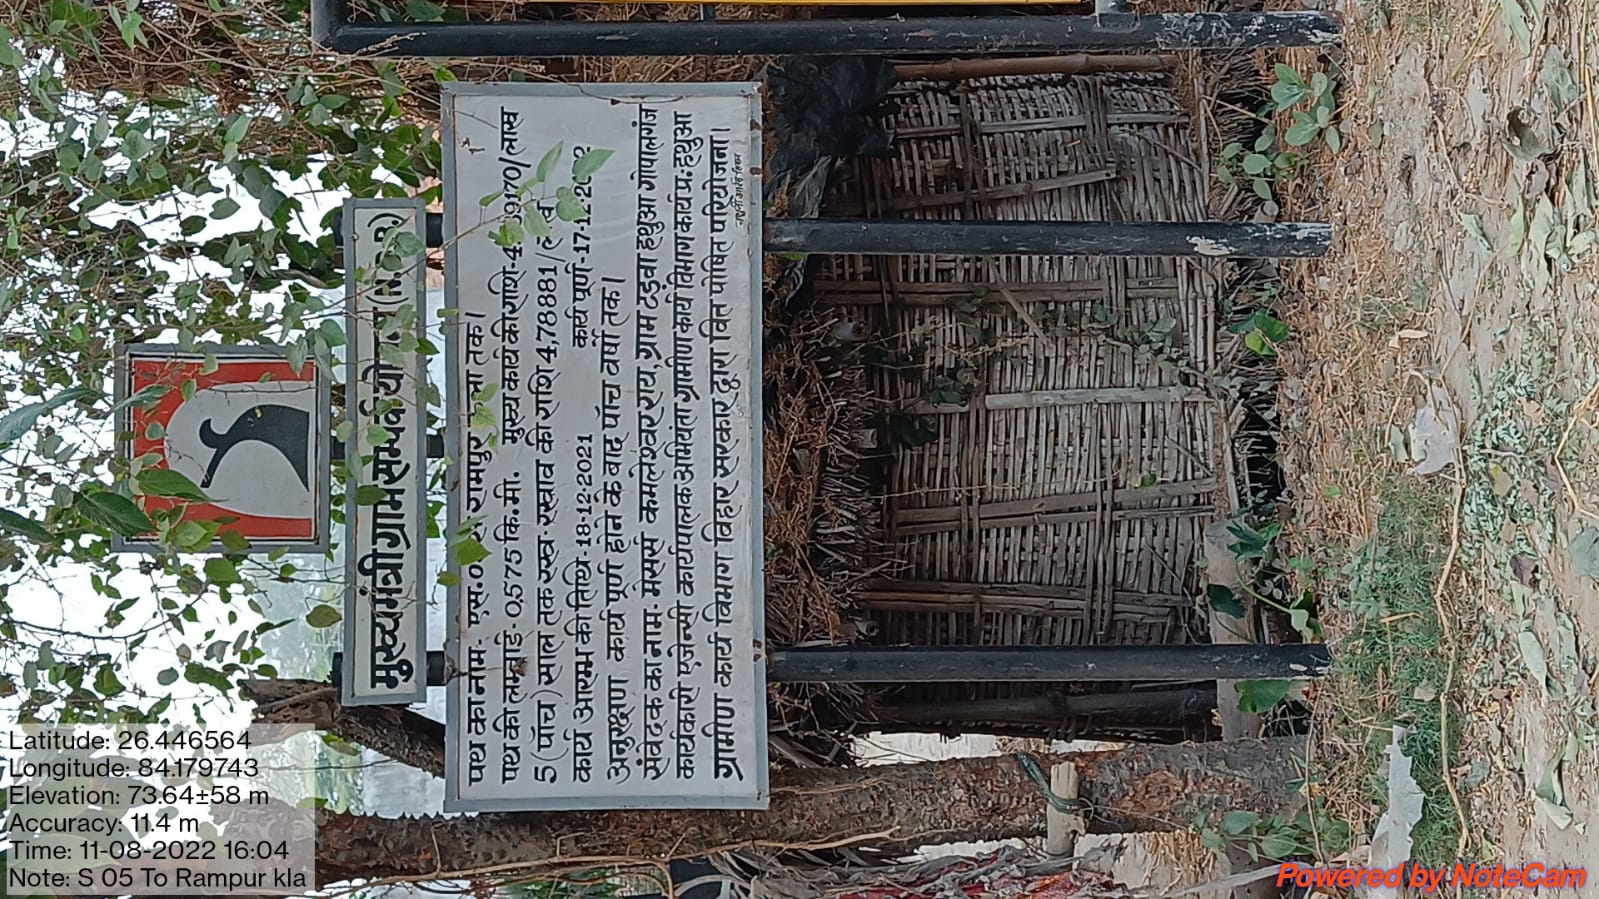 मुख्यमंत्री ग्राम सम्पर्क योजना (N.D.B)
पथ का नाम:- एस.0 रामपुर कला तक।
पथ की लम्बाई- 0.575 कि.मी. मुख्य कार्य की राशि- 9170/लाख
5 (पाँच) साल तक रख- रखाव की राशि 4,78881/
कार्य आरम्भ की तिथि-18-12-2021 कार्य पूर्ण-17-12-2022
अनुरक्षण कार्य पूर्ण होने के बाद पाँच वर्षो तक।
संवेदक का नाम- मेसर्स कमलेश्वर राय, ग्राम टड़वा हथुआ गोपालगंज
कार्यकारी एजेन्सी कार्यपालक अभियंता ग्रामीण कार्य विभाग कार्य प्र: हथुआ
ग्रामीण कार्य विभाग बिहार सरकार द्वारा वित पोषित परियोजना।
Latitude: 26.446564
Longitude: 84.179743
Elevation: 73.64±58 m
Accuracy: 11.4 m
Time: 11-08-2022 16:04
Note: S 05 To Rampur kla
Powered by NoteCam